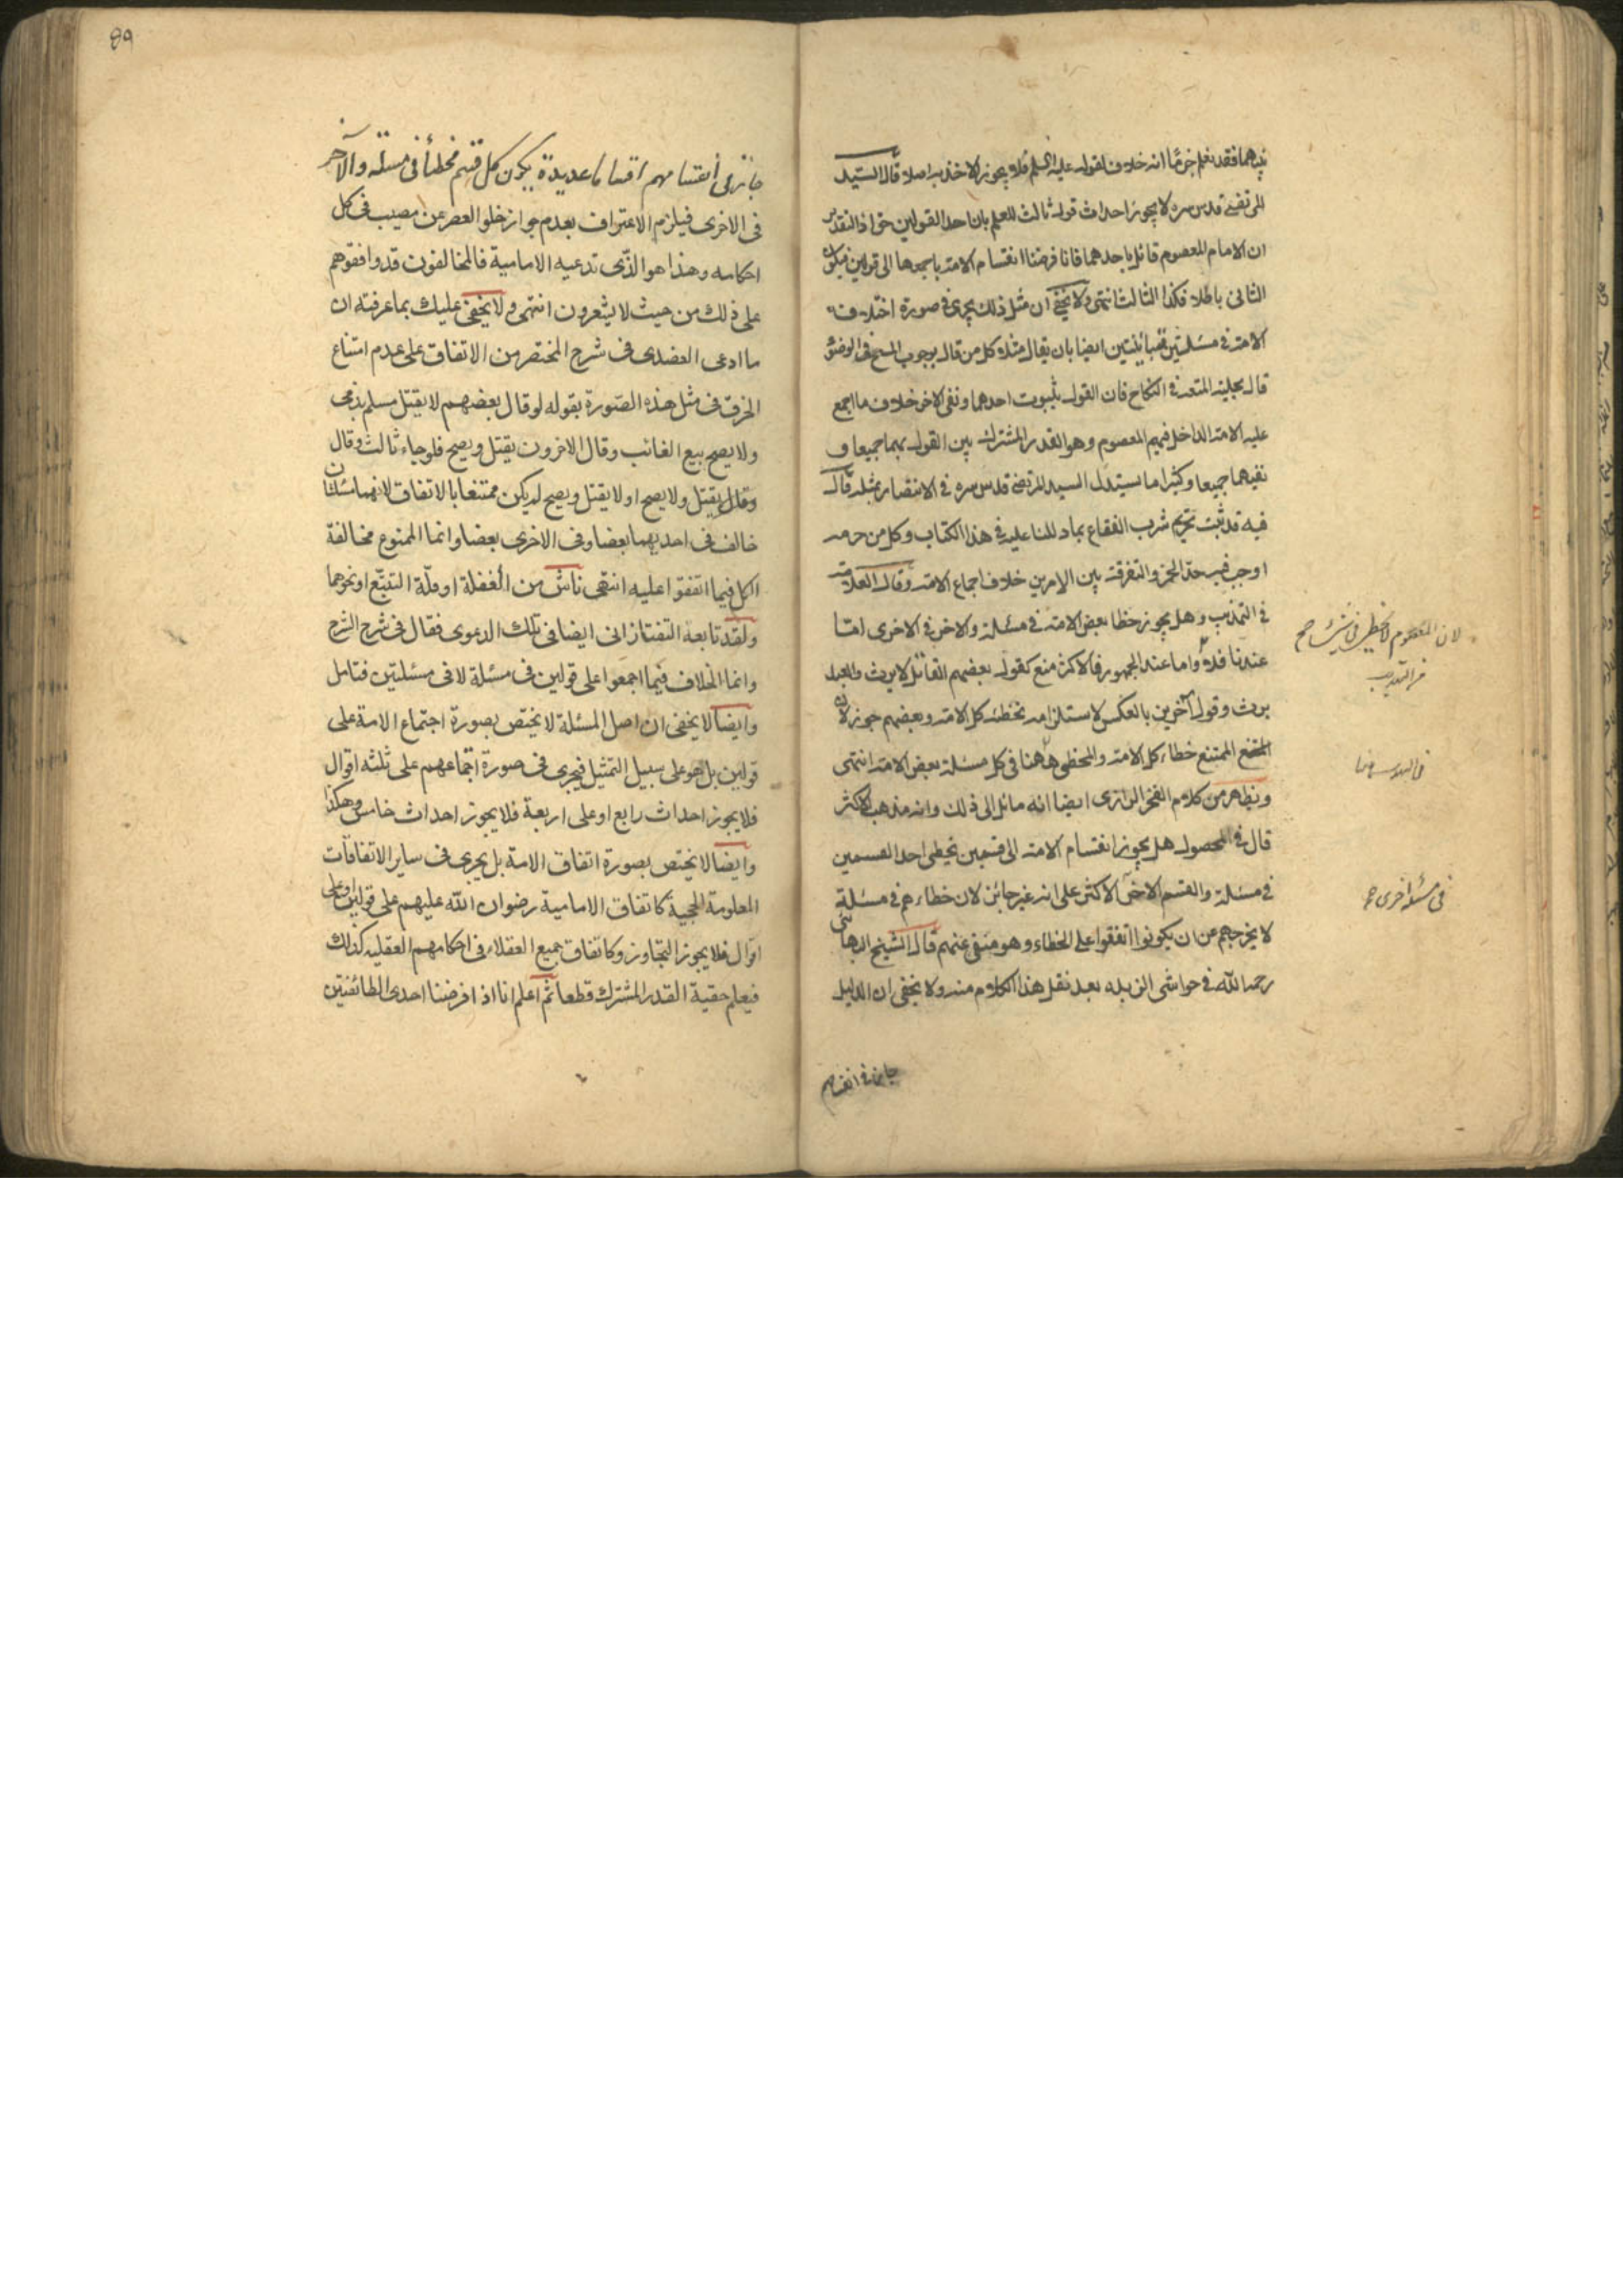 فيهما فقد نعلم جزما انه خلاف لقوله عليه السلم فلا يجوز الاخذ به اصلا قال السيد
المرتضى قدس سره لا يجوز احداث قول ثالث للعلم بان احد القولين حق اذ التقدير
ان الامام المعصوم قائل باحدهما فانا فرضنا انقسام الامة باجمعها الى قولين فيكون
الثانى باطلا فكذا الثالث انتهى ولا يخفى ان مثل ذلك يجرى فى صورة اختلاف
الامة فى مسئلتين متباينتين ايضا بان يقال مثلا كل من قال بوجوب المسح فى الوضوء
قال بحلية المتعة فى النكاح فان القول بثبوت احدهما ونفى الاخر خلاف ما اجمع
عليه الامة الداخل فيهم المعصوم وهو القدر المشترك بين القول بهما جميعا و
نفيهما جميعا وكثيرا ما يستدل السيد المرتضى قدس سره فى الانتصار بمثله قال
فيه قد ثبت تحريم شرب الفقاع بما دللنا عليه فى هذا الكتاب وكل من حرمه
اوجب فيه حد الخمر والتفرقة بين الامرين خلاف اجماع الامة وقال العلامة
فى التهذيب وهل يجوز خطا بعض الامة فى مسئلة والاخر فى الاخرى اما
عندنا فلا واما عند الجمهور فالاكثر منع كقول بعضهم القاتل لا يرث والعبد
يرث وقول آخرين بالعكس لاستلزامه تخطئة كل الامة وبعضهم جوز لان
الممتنع خطاء كل الامة والمخطى هاهنا فى كل مسئلة بعض الامة انتهى
ويظهر من كلام الفخر الرازى ايضا انه مائل الى ذلك وانه مذهب الاكثر
قال فى المحصول هل يجوز انقسام الامة الى قسمين يخطى احد القسمين
فى مسئلة والقسم الاخر الاكثر على انه غير جائز لان خطاءهم فى مسئلة
لا يخرجهم عن ان يكونوا اتفقوا على الخطاء وهو منفى عنهم قال الشيخ البهائى
رحمه الله فى حواشى الزبدة بعد نقل هذا الكلام منه ولا يخفى ان الدليل
جائز فى انقسامهم
لان المعصوم لا يخطى فى شئ صح
من التهذيب
فى مسئلة اخرى صح
89
جائز فى انقسامهم اقساما عديدة يكون كل قسم مخطأ فى مسئلة والآخر
فى الاخرى فيلزم الاعتراف بعدم جواز خلو العصر عن مصيب فى كل
احكامه وهذا هو الذى تدعيه الامامية فالمخالفون قد وافقوهم
على ذلك من حيث لا يشعرون انتهى ولا يخفى عليك بما عرفته ان
ما ادعى العضدى فى شرح المختصر من الاتفاق على عدم امتناع
الخرق فى مثل هذه الصورة بقوله لو قال بعضهم لا يقتل مسلم بذمى
ولا يصح بيع الغائب وقال الاخرون يقتل ويصح فلو جاء ثالث وقال
وقال يقتل ولا يصح او لا يقتل ويصح لم يكن ممتنعا بالاتفاق لانهما مسئلتان
خالف فى احديهما بعضا وفى الاخرى بعضا وانما الممنوع مخالفة
الكل فيما اتفقوا عليه انتهى ناش من الغفلة او قلة التتبع او نحوهما
ولقد تابعه التفتازانى ايضا فى تلك الدعوى فقال فى شرح الشرح
وانما الخلاف فيما اجمعوا على قولين فى مسئلة لا فى مسئلتين فتامل
وايضا لا يخفى ان اصل المسئلة لا يختص بصورة اجتماع الامة على
قولين بل هو على سبيل التمثيل فيجرى فى صورة اجتماعهم على ثلثة اقوال
فلا يجوز احداث رابع او على اربعة فلا يجوز احداث خامس وهكذا
وايضا لا يختص بصورة اتفاق الامة بل يجرى فى ساير الاتفاقات
المعلومة الحجية كاتفاق الامامية رضوان الله عليهم على قولين او على
اقوال فلا يجوز التجاوز وكاتفاق جميع العقلاء فى احكامهم العقلية كذلك
فيعلم حقية القدر المشترك قطعا ثم اعلم انا اذا فرضنا احدى الطائفتين